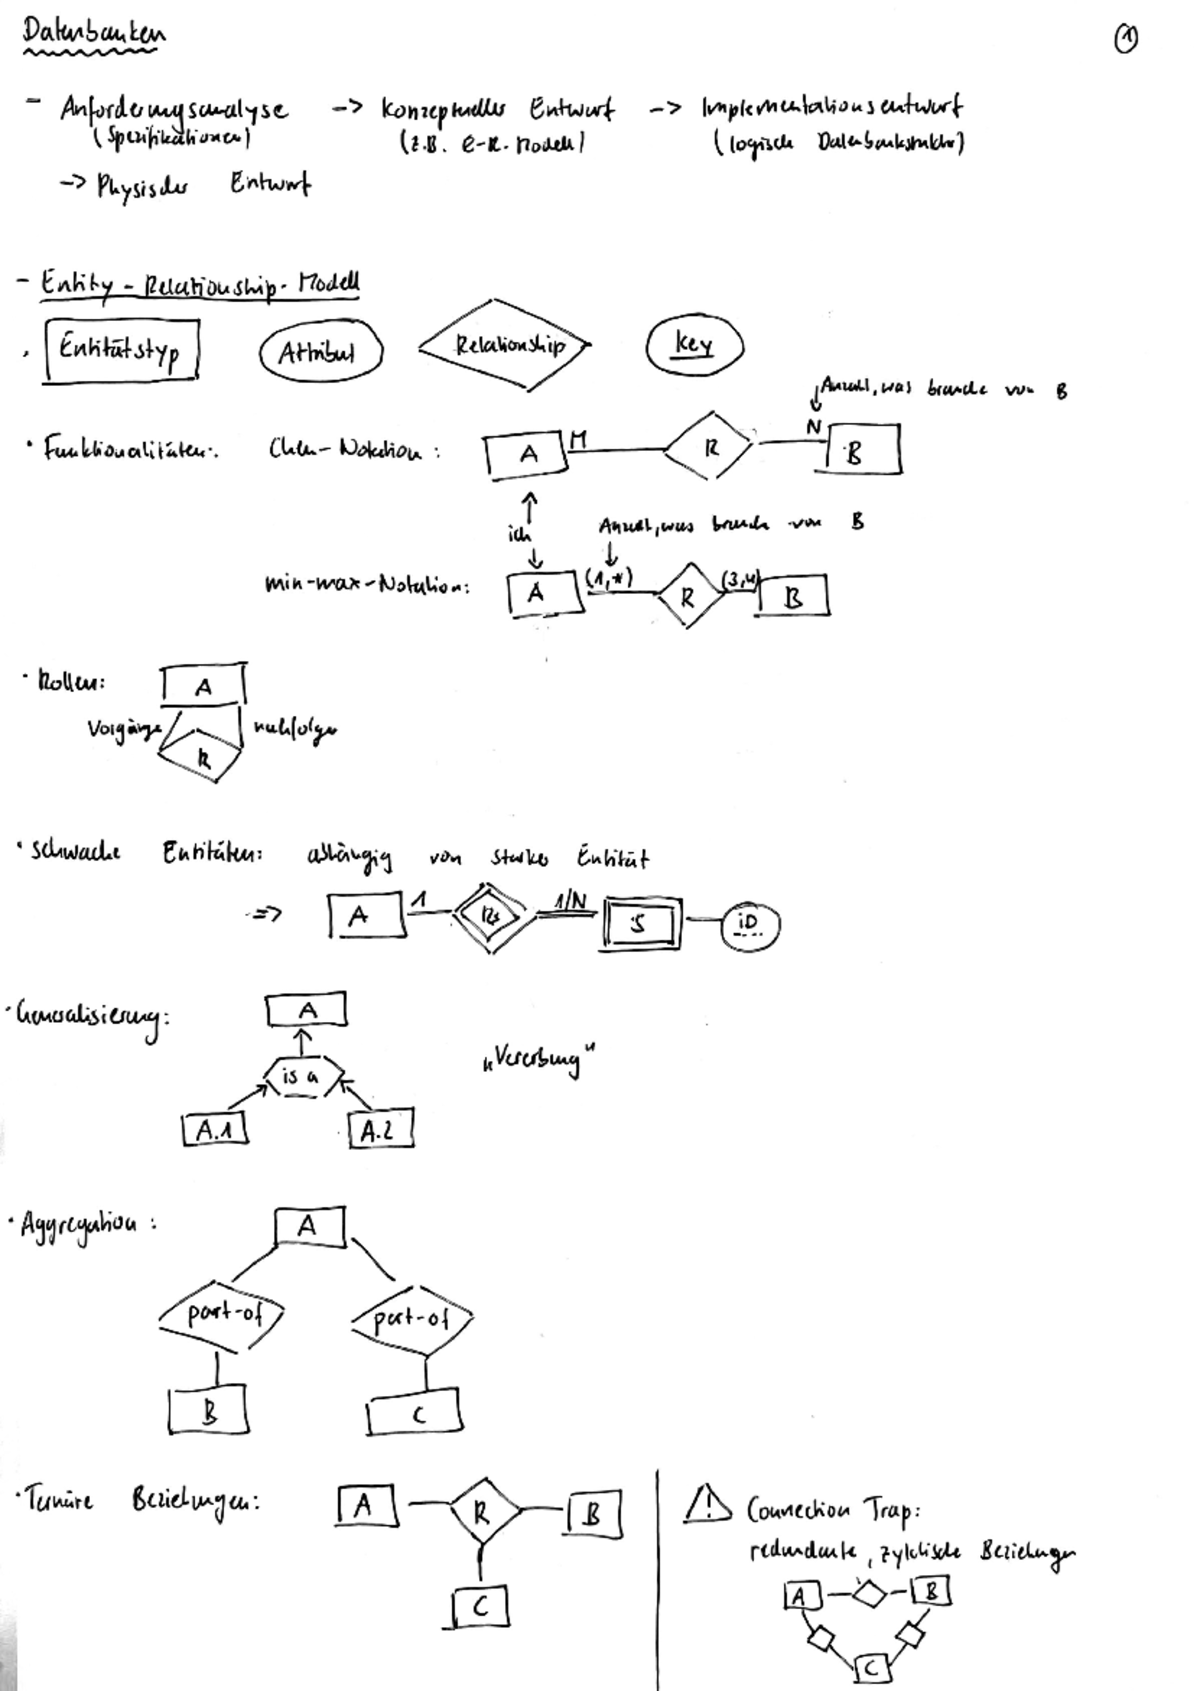 Datenbanken
1
- Anforderungsanalyse -> Konzeptueller Entwurf -> Implementationsentwurf
(Spezifikationen) (z.B. E-R-Modell) (logische Datenbankstruktur)
-> Physischer Entwurf
- Entity-Relationship-Modell
Entitätstyp Attribut Relationship Key
Anzahl, was brauche von B
· Funktionalitäten: Chen-Notation: A M R N B
ich Anzahl, was brauche von B
min-max-Notation: A (1,*) R (3,4) B
· Rollen: A
Vorgänger nachfolger
R
· schwache Entitäten: abhängig von starker Entität
=> A 1 Rs 1/N S iD
· Generalisierung: A
is a "Vererbung"
A.1 A.2
· Aggregation: A
part-of part-of
B C
· Ternäre Beziehungen: A R B
C
! Connection Trap:
redundante, zyklische Beziehungen
A B
C